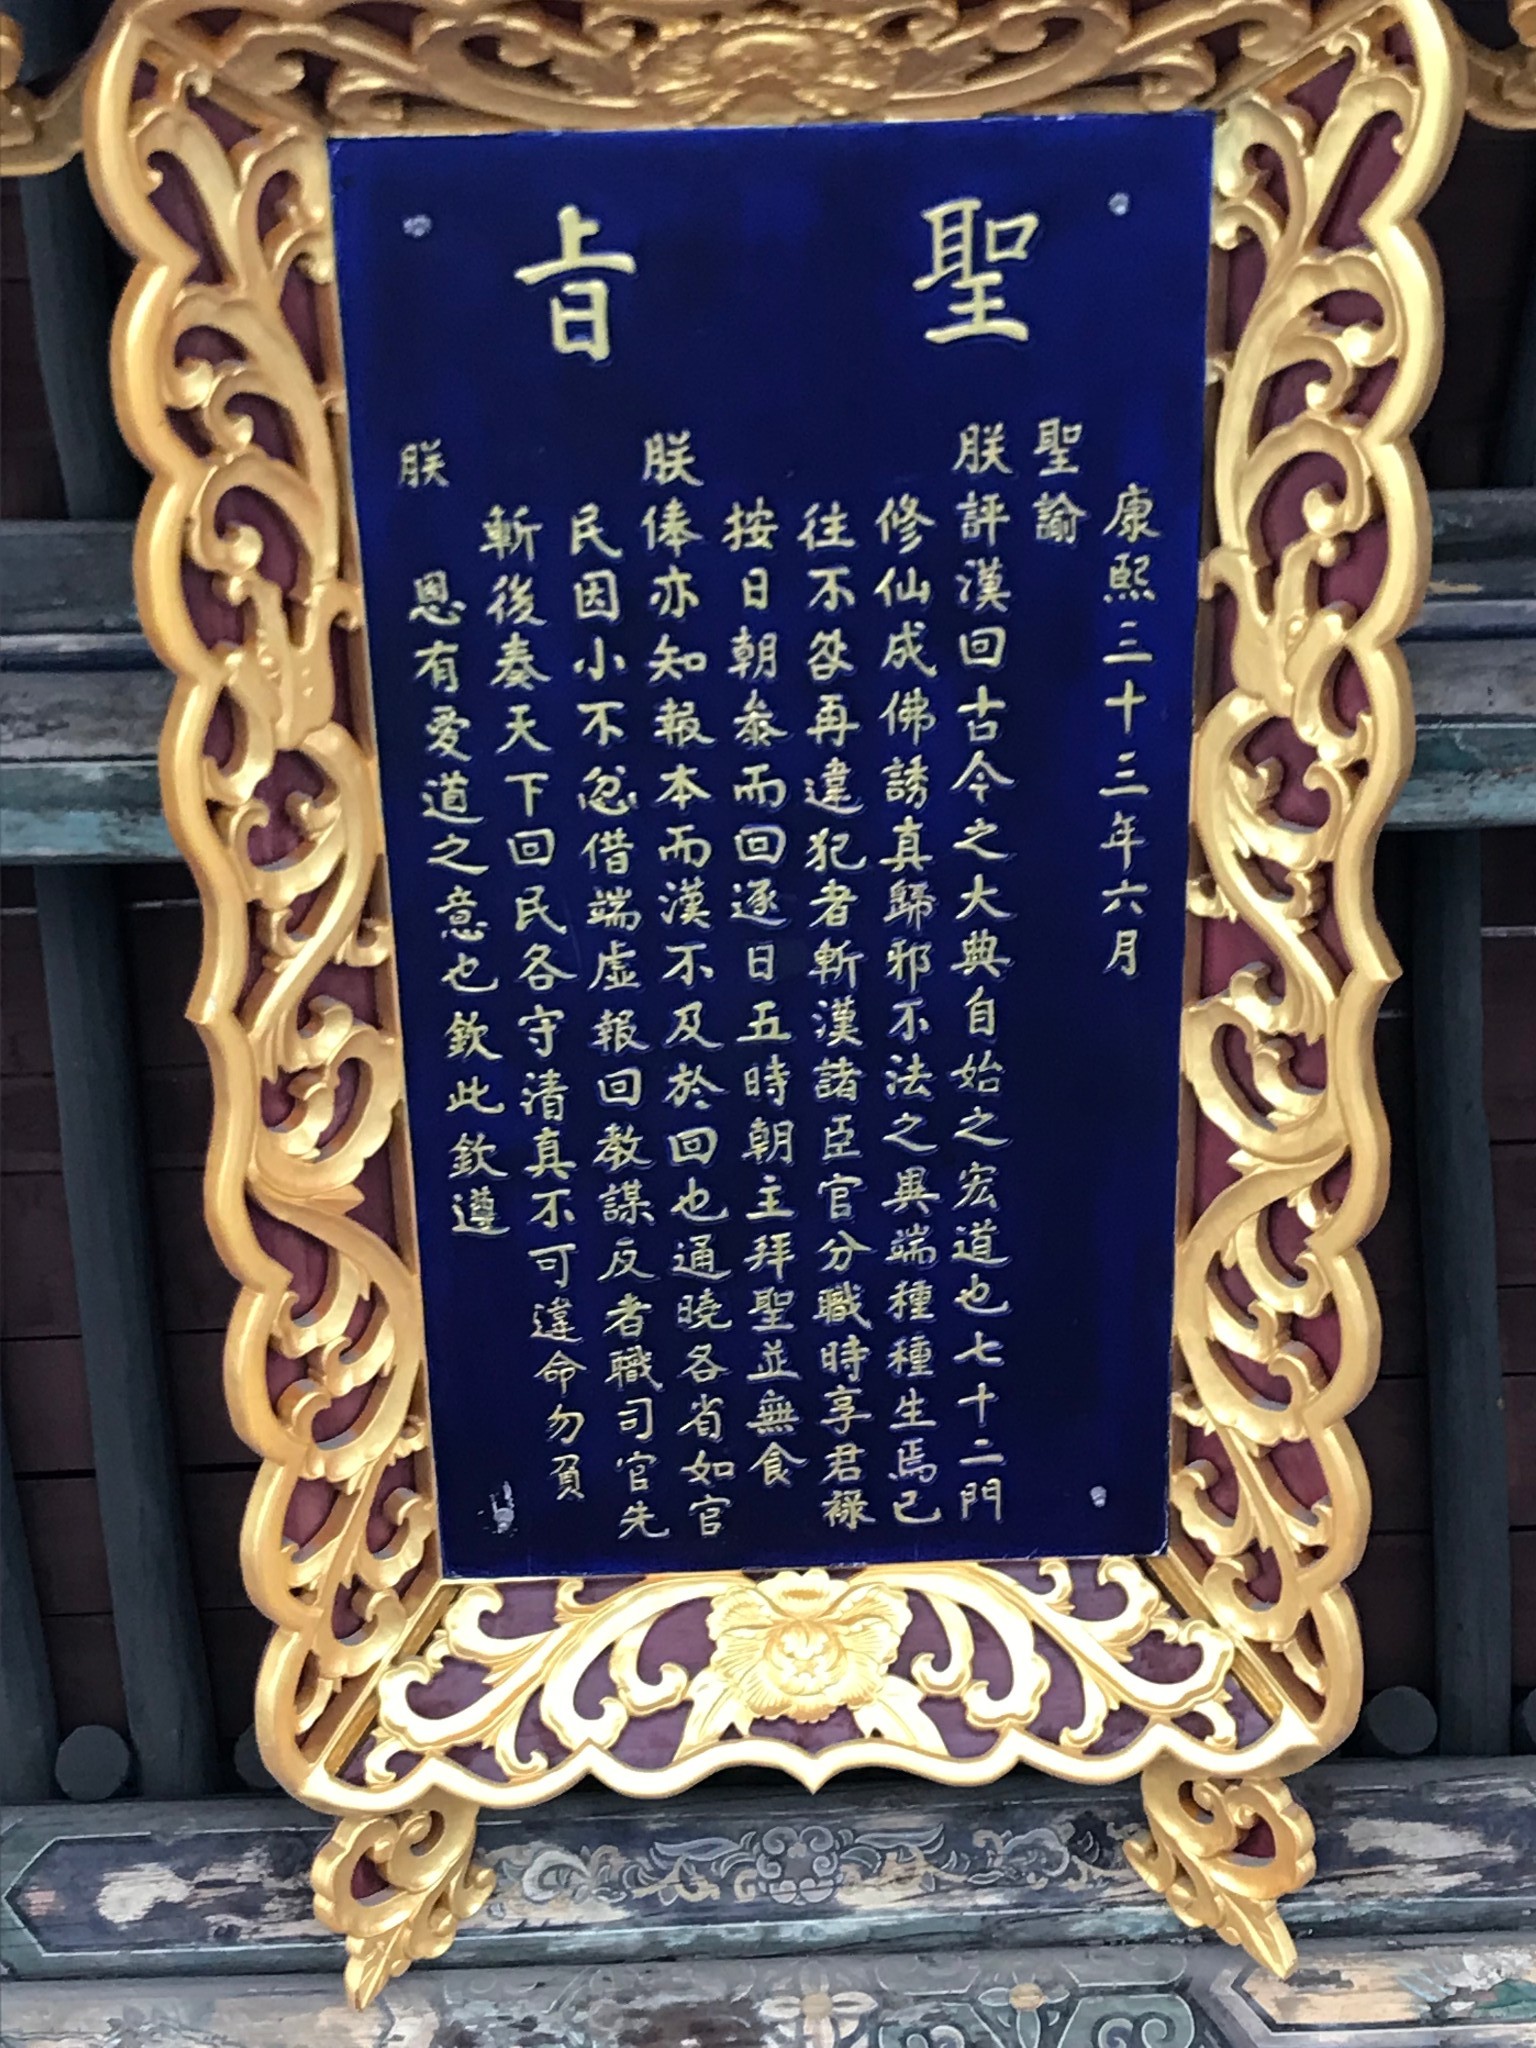 聖旨
康熙三十三年六月
聖諭
朕評漢回古今之大典自始之宏道也七十二門
修仙成佛誘真歸邪不法之異端種種生焉已
往不咎再違犯者斬漢諸臣官分職時享君祿
按日朝叅而回逐日五時朝主拜聖並無食
朕俸亦知報本而漢不及於回也通曉各省如官
民因小不忿借端虛報回教謀反者職司官先
斬後奏天下回民各守清真不可違命勿負
朕 恩有愛道之意也欽此欽遵